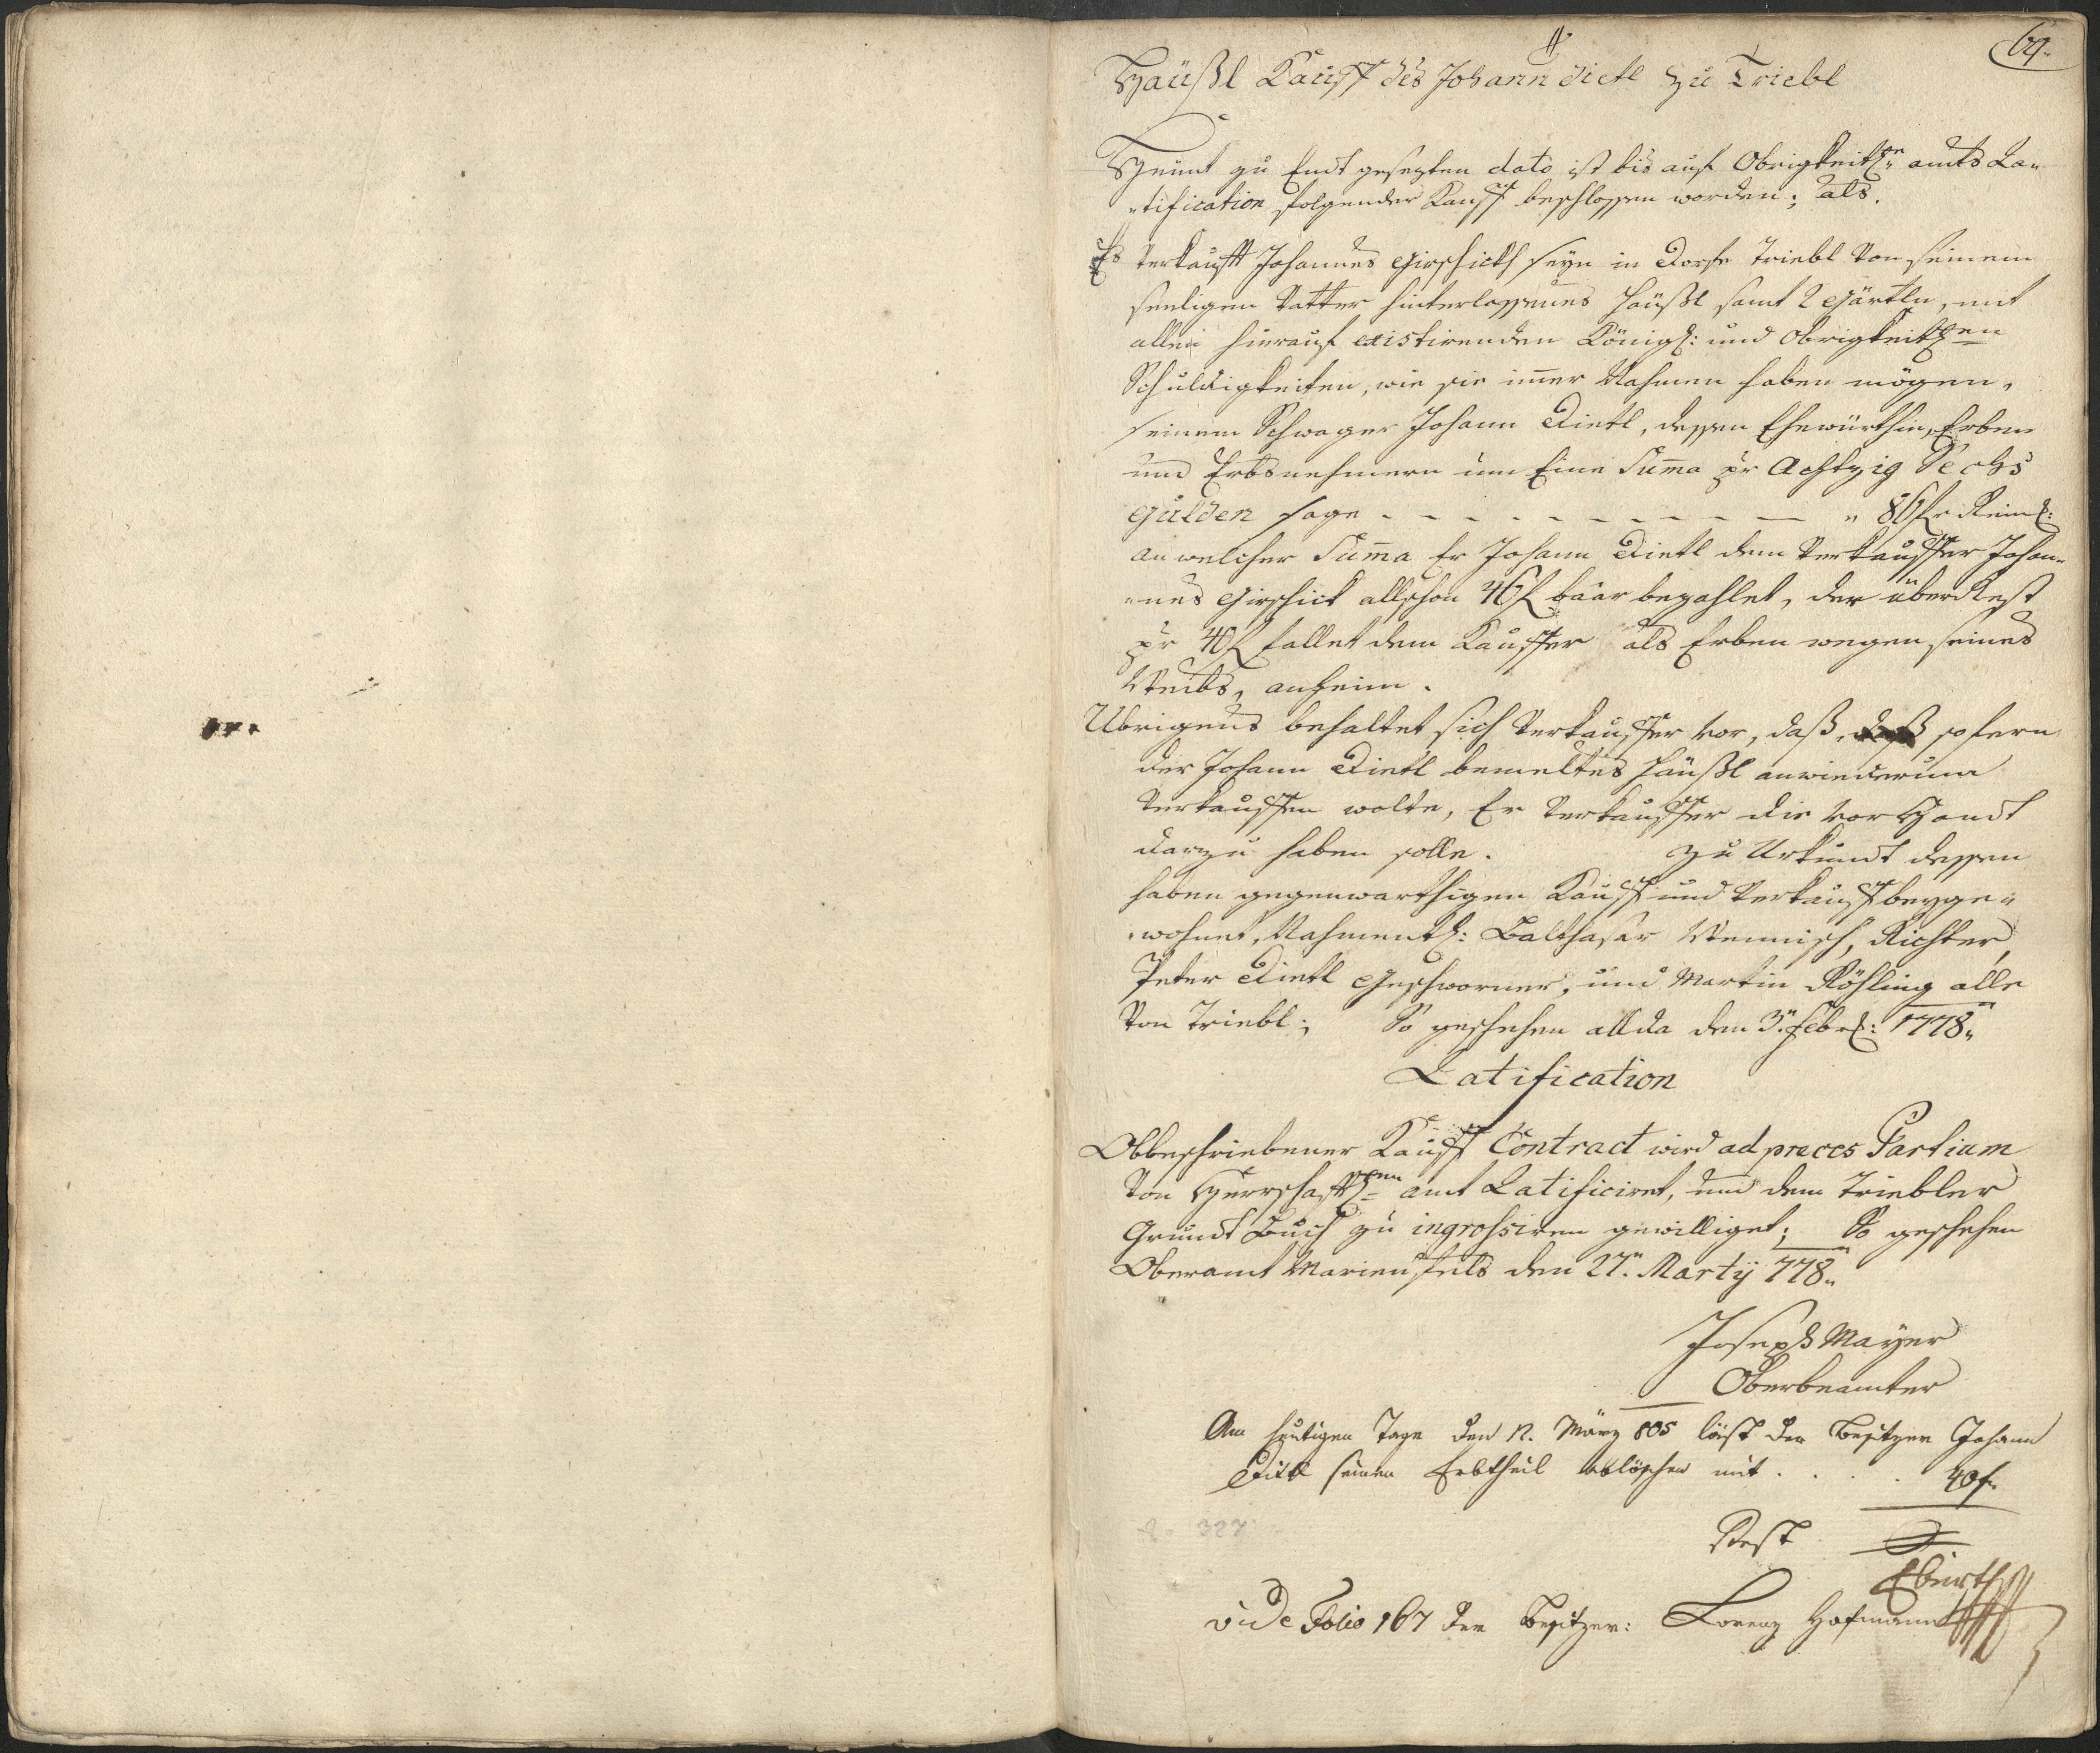 69.
Häußl Kauff des Johann Dietl zu Triebl
Heünt zu Endt gesezten dato ist bis auf Obrigkeitl:en amts Ra-
-tification folgender Kauff beschlossen worden; als.
Es verkaufft Johannes Girschick seyn in Dorfe Triebl von seinem
seeligen Vatter hinterlassenes Häußl samt 2 Gärtln, mit
allen hierauf existirenden Königl: und Obrigkeitl:en
Schuldigkeiten, wie sie imer Nahmen haben mögen,
seinem Schwager Johann Dietl, dessen Ehewürthin, Erben
und Erbsnehmern um Eine Suma pr Achtzig Sechs
Gulden sage - - - - - - - - - " 86 fl Reinl:
an welcher Suma Er Johann Dietl dem Verkauffer Johan-
-nes Girschick allschon 46 fl baar bezahlet, der über Rest
pr 40 fl fallet dem Kauffer als Erben wegen seines
Weibs, anheim.
Übrigens behaltet sich Verkauffer vor, daß, sofern
der Johann Dietl bemeltes Häußl anwiederum
verkauffen wolte, Er Verkauffer die vor Handt
darzu haben solle. Zu Urkundt dessen
haben gegenwarthigen Kauff und Verkauff beyge-
-wohnet, Nahmentl: Balthasar Wennisch, Richter,
Peter Dietl Geschworner, und Martin Röhling alle
von Triebl; So geschehen allda den 3" Febrl: 1778.
Ratification
Obbeschriebener Kauff Contract wird ad preces Partium
von Herrschafftl:en amt Ratificiret, und dem Triebler
Grundt Buch zu ingrossiren gewilliget; So geschehen
Oberamt Marienfels den 27" Martÿ 778.
Joseph Mayer
Oberbeamter
Am heutigen Tage den 12. März 805 läst der Besitzer Johann
Dietl seinen Erbtheil ablöschen mit . . . . 40 f
Rest
327
Eberth
vide Folio 167 der Besitzer: Lorenz Hofmann